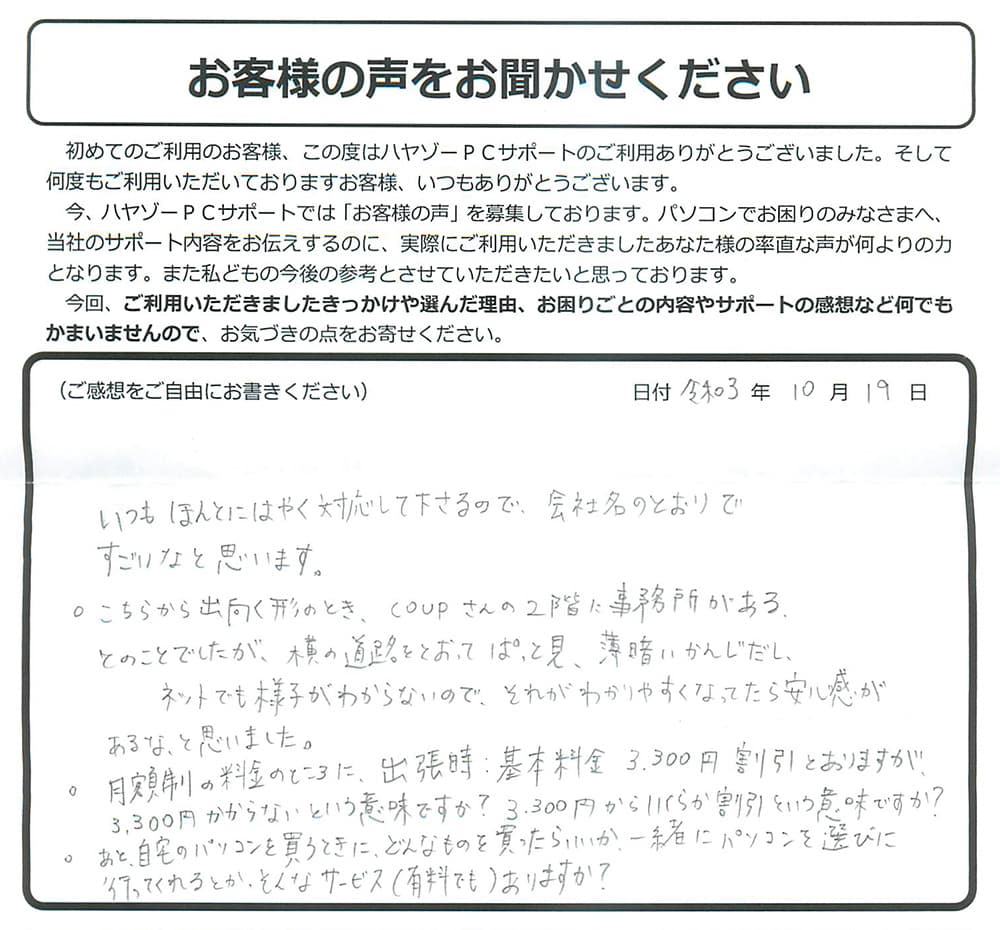 お客様の声をお聞かせください
初めてのご利用のお客様、この度はハヤゾーPCサポートのご利用ありがとうございました。そして
何度もご利用いただいておりますお客様、いつもありがとうございます。
今、ハヤゾーPCサポートでは「お客様の声」を募集しております。パソコンでお困りのみなさまへ、
当社のサポート内容をお伝えするのに、実際にご利用いただきましたあなた様の率直な声が何よりの力
となります。また私どもの今後の参考とさせていただきたいと思っております。
今回、ご利用いただきましたきっかけや選んだ理由、お困りごとの内容やサポートの感想など何でも
かまいませんので、お気づきの点をお寄せください。
（ご感想をご自由にお書きください） 日付 令和3 年 10 月 19 日
いつも ほんとにはやく対応して下さるので、会社名のとおりで
すごいなと思います。
○ こちらから出向く形のとき、COUPさんの2階に事務所がある、
とのことでしたが、横の道路をとおって ぱっと見、薄暗いかんじだし、
ネットでも様子がわからないので、それがわかりやすくなってたら安心感が
あるな、と思いました。
○ 月額制の料金のところに、出張時：基本料金 3.300円 割引とありますが、
3,300円かからないという意味ですか？ 3.300円からいくらか割引という意味ですか？
○ あと、自宅のパソコンを買うときに、どんなものを買ったらいいか、一緒にパソコンを選びに
行ってくれるとか、そんなサービス（有料でも）ありますか？